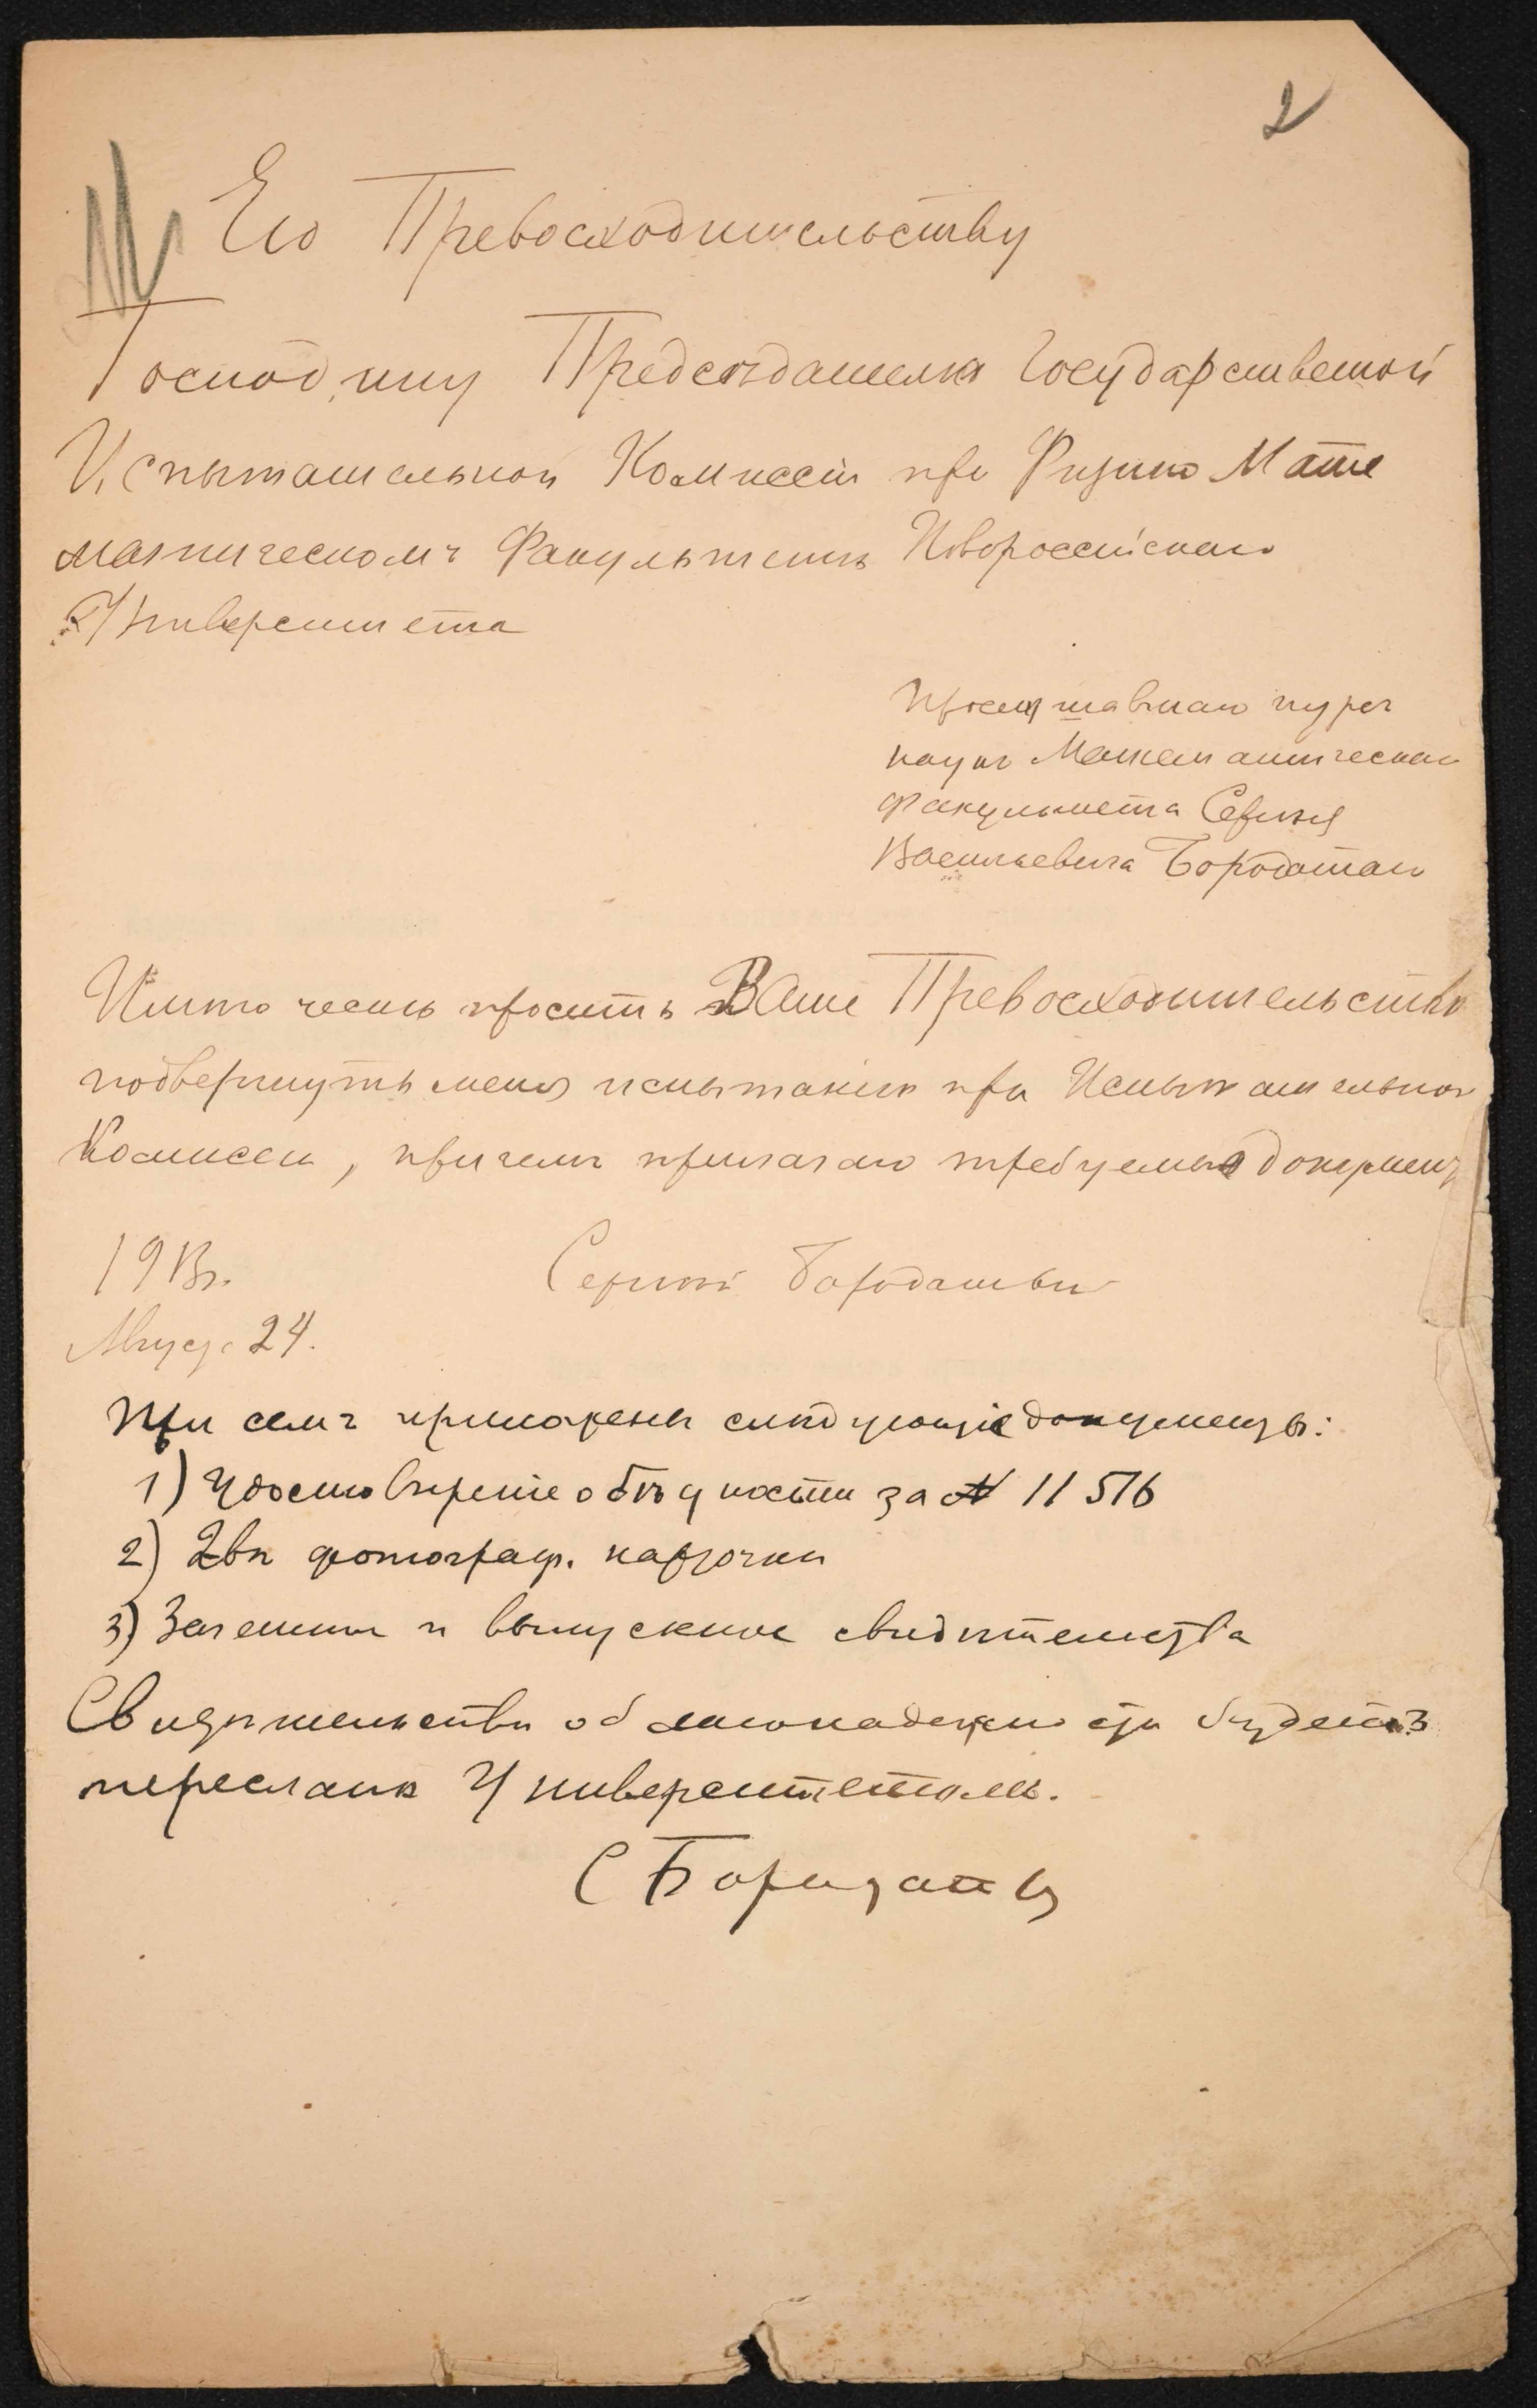 2
Его Превосходительству
Господину Председателю Государственной
Испытательной Комиссіи при Физико Мате
матическомъ Факультетѣ Новороссійскаго
Университета
Прослушавшаго курсъ
наукъ Математическаго
факультета Сергѣя
Васильевича
Имѣю честь просить Ваше Превосходительство
подвергнуть меня испытанію при Испытательной
Комиссіи, при чемъ прилагаю требуемыя документ
1913г.
Август 24.
При семъ приложены слѣдующіе документы:
1) Удостовѣреніе о бѣдности за № 11516
2) Двѣ фотограф. карточки
3) Зачетное и выпускное свидѣтельства
Свидѣтельство об благонадежности будетъ
переслано Университетомъ.